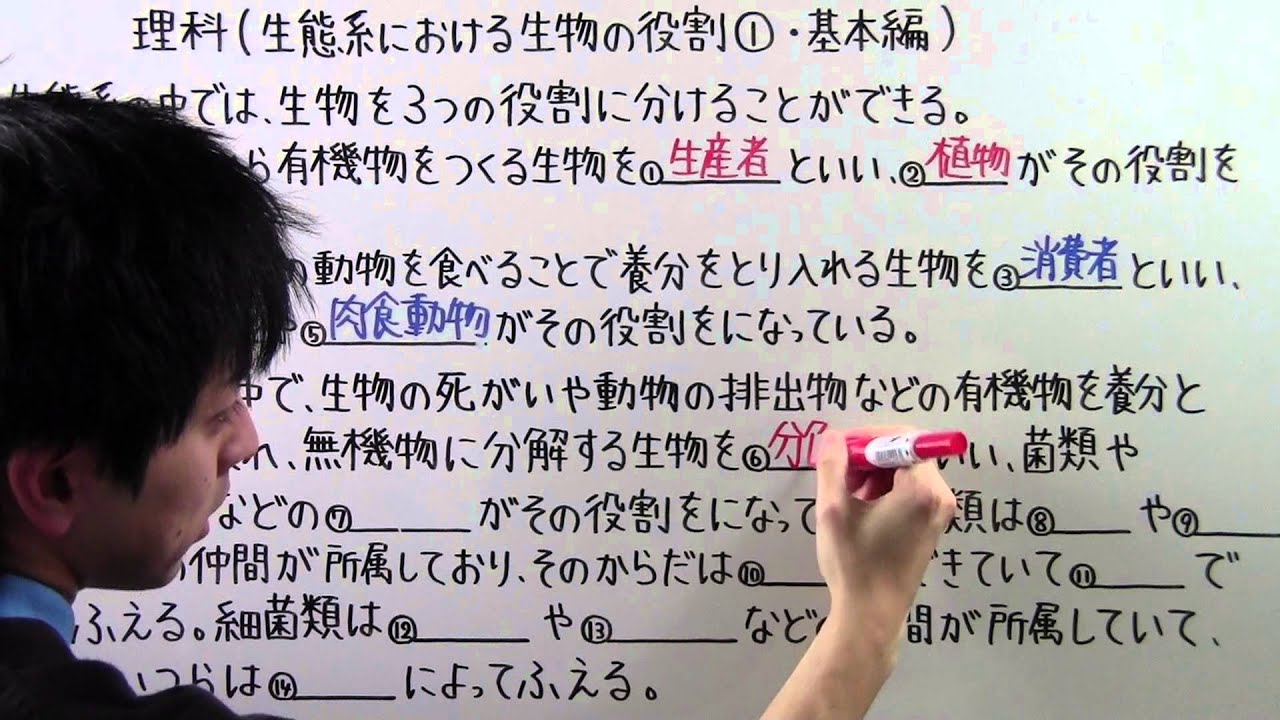 理科(生態系における生物の役割①・基本編)
生態系の中では、生物を3つの役割に分けることができる。
ら有機物をつくる生物を①生産者といい、②植物がその役割を
の動物を食べることで養分をとり入れる生物を③消費者といい、
や⑤肉食動物がその役割をになっている。
中で、生物の死がいや動物の排出物などの有機物を養分と
れ、無機物に分解する生物を⑥分 いい、菌類や
などの⑦____がその役割をになって 類は⑧____や⑨____
の仲間が所属しており、そのからだは⑩____できていて⑪____で
ふえる。細菌類は⑫____や⑬____などの 間が所属していて、
いつらは⑭____によってふえる。